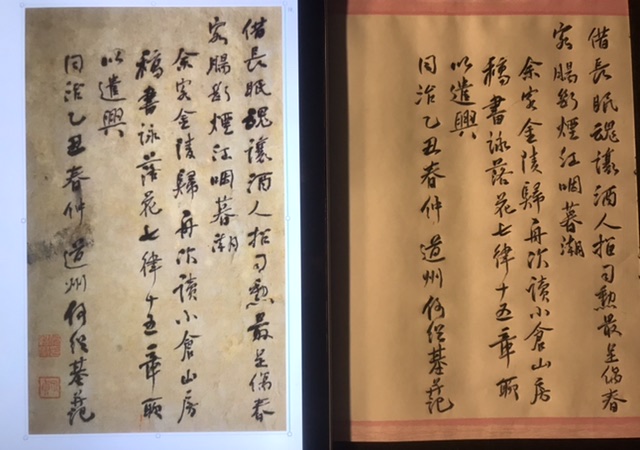 借長眠魂讓酒人招司勲最是傷春
客腸斷煙江咽暮潮
余客金陵歸舟次讀小倉山房
稿書詠落花七律十五章聊
以遣興
同治乙丑春仲道州何紹基并記
借長眠魂讓酒人招司勲最是傷春
客腸斷煙江咽暮潮
余客金陵歸舟次讀小倉山房
稿書詠落花七律十五章聊
以遣興
同治乙丑春仲道州何紹基并記